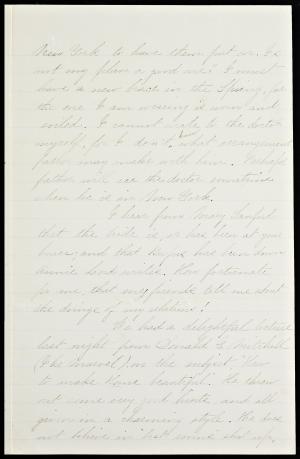 New York to have them put on. Is
not my plan a good one? I must
have a new one in the Spring, for
the one I am wearing is worn and
soiled. I cannot write to the doctor
myself, for I don't know what arrangement
father may make with him. Perhaps
father will see the doctor sometime
when he is in New York.
I hear from Mary Sanford
that the bride is, or has been at your
house, and that has been down
Annie How fortunate
for me, that my friends tell me about
the doings of my relations!
We had a delightful lecture
last night from Donald G. Mitchell
(Ike Marvel), on the subject "How
to make home beautiful." He threw
out some very good hints, and all
given in a charming style. He does
not believe in "best rooms shut up,